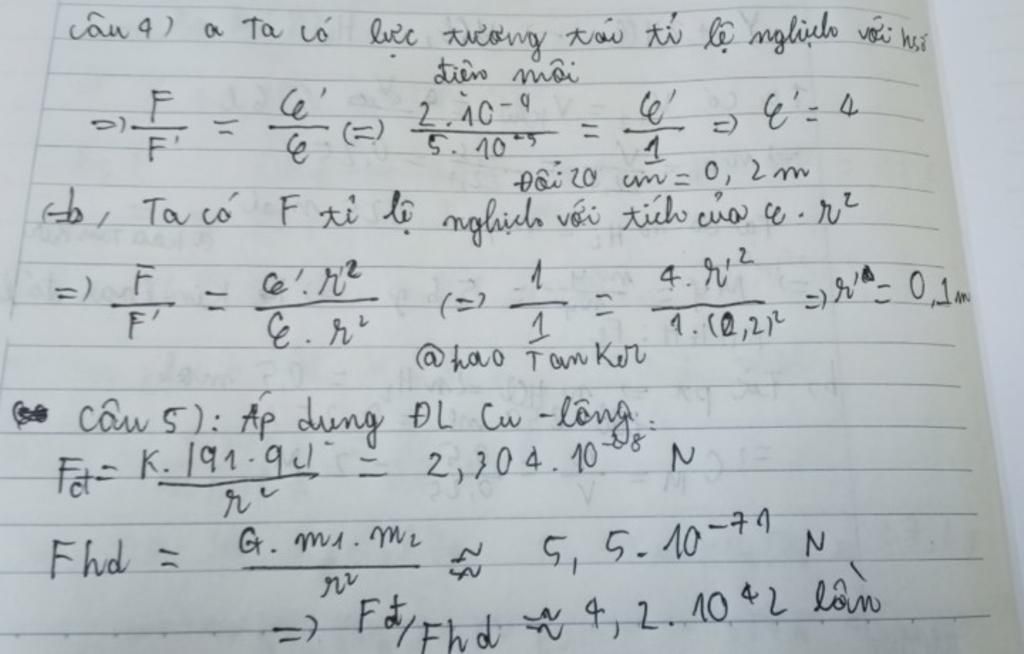 Câu 4) a Ta có lực tương tác tỉ lệ nghịch với hsố
điện môi
=> F/F' = ε'/ε <=> 2.10⁻⁴/5.10⁻⁵ = ε'/1 => ε' = 4
Đổi 20 cm = 0,2 m
b, Ta có F tỉ lệ nghịch với tích của ε.r²
=> F/F' = ε'.r'²/ε.r² <=> 1/1 = 4.r'²/1.(0,2)² => r' = 0,1m
@hao TanKer
Câu 5): Áp dụng ĐL Cu-lông:
Fđ = K.|q1.q2|/r² = 2,304.10⁻⁸ N
Fhd = G.m1.m2/r² ≈ 5,5.10⁻⁷¹ N
=> Fđ/Fhd ≈ 4,2.10⁴² lần